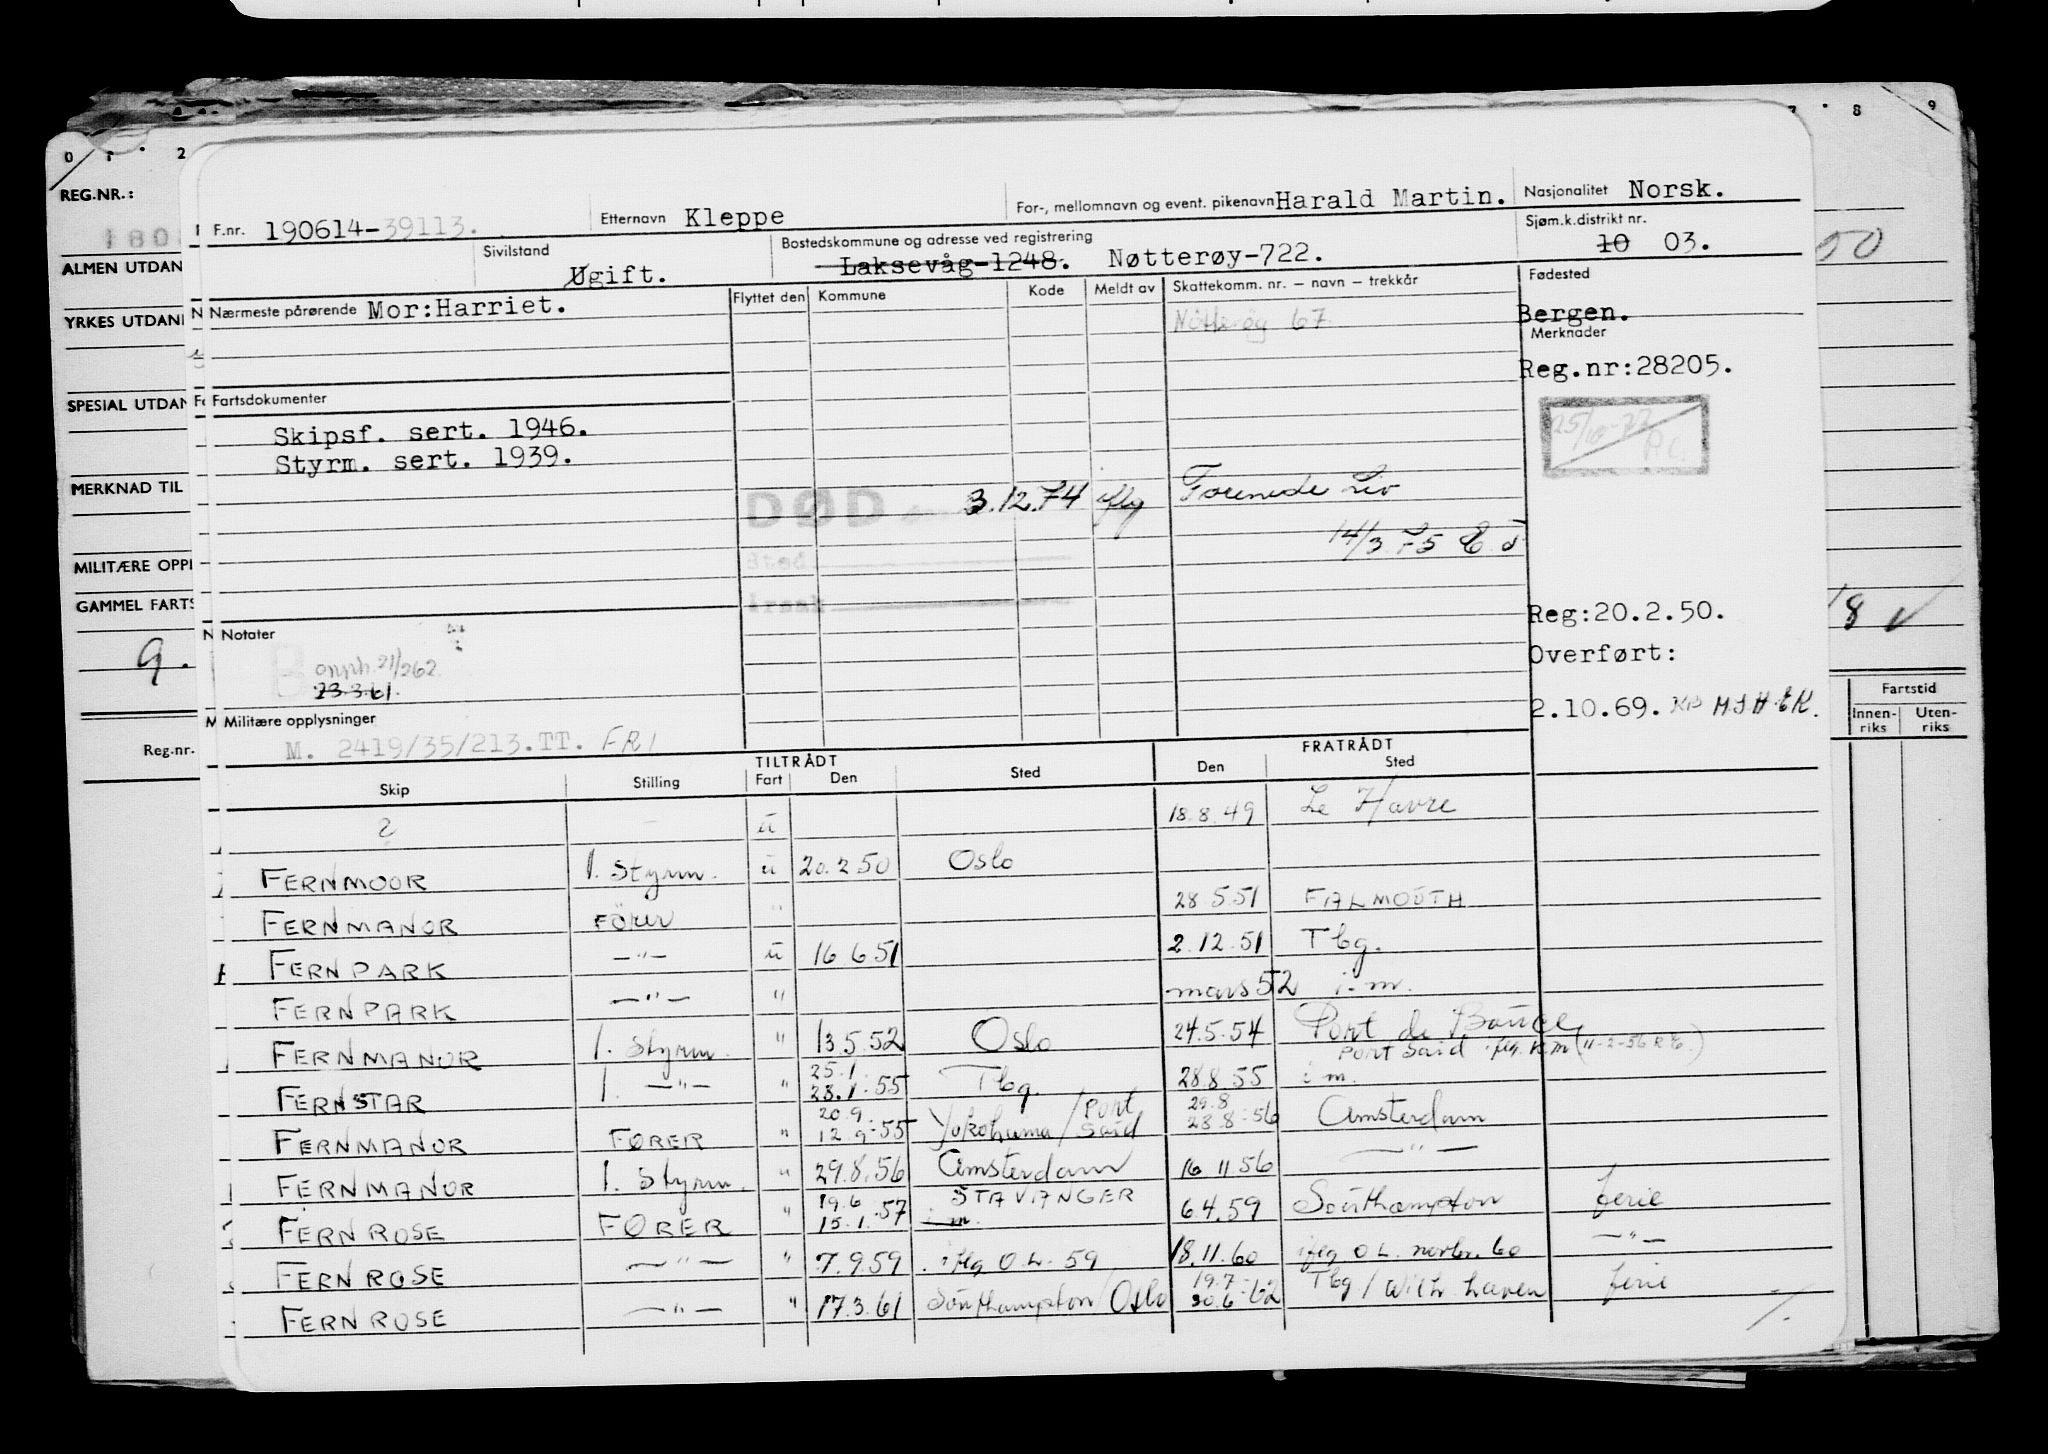 0 1 2 7 8 9
REG.NR.:
F.nr. 190614-39113. Etternavn Kleppe For-, mellomnavn og event. pikenavn Harald Martin. Nasjonalitet Norsk.
Sivilstand Ugift. Bostedskommune og adresse ved registrering Laksevåg-1248. Nøtterøy-722. Sjøm.k.distrikt nr. 10 03.
ALMEN UTDAN
Nærmeste pårørende Mor:Harriet. Flyttet den Kommune Kode Meldt av Skattekomm. nr. – navn – trekkår Fødested
Nøtterøy 67 Bergen.
YRKES UTDANN
Merknader
Reg.nr:28205.
SPESIAL UTDAN
Fartsdokumenter
25/10-72
Skipsf. sert. 1946.
Styrm. sert. 1939.
MERKNAD TIL
DØD 3.12.74 iflg Forenede Liv
14/3.75
Sted
MILITÆRE OPPL
årsak
GAMMEL FARTS
Reg:20.2.50.
Notater
9.
B opph. 21/262
23.3.61.
Overført:
2.10.69. KB H.S.H.EK.
Fartstid
Innen-riks Uten-riks
Militære opplysninger
M. 2419/35/213.TT. FRI
Reg.nr.
TILTRÅDT FRATRÅDT
Skip Stilling Fart Den Sted Den Sted
? – u 18.8.49 Le Havre
FERNMOOR 1. Styrm. u 20.2.50 Oslo
FERNMANOR FÖRER " 28.5.51 FALMOUTH
FERNPARK —"— u 16.6.51 2.12.51 Tbg.
FERNPARK —"— " mars 52 i.m.
FERNMANOR 1. Styrm. " 13.5.52 Oslo 24.5.54 Port de Bouc
Port Said iflg. K.M (11-2-56 R.E.)
FERNSTAR 1. —"— " 25.1. 28.1.55 Tbg. 28.8.55 i m.
FERNMANOR FØRER " 20.9. 12.9.-55 Yokohama/Port Said 29.8 28.8.-56 Amsterdam
FERNMANOR 1. Styrm. " 29.8.56 Amsterdam 16.11.56 —"—
FERNROSE FØRER " 19.6 15.1.-57 STAVANGER i m. 6.4.59 Southampton ferie
FERNROSE —"— " 7.9.59 iflg O.L. 59 18.11.60 iflg O.L. novbr. 60 —"—
FERNROSE —"— " 17.3.61 Southampton/Oslo 19.7- 30.6-62 Tbg/Wilh.haven ferie